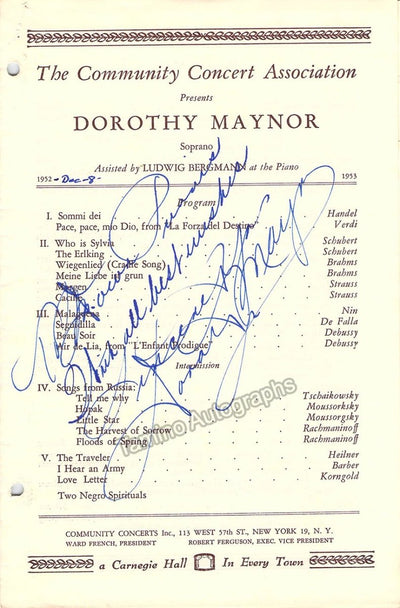 The Community Concert Association
Presents
DOROTHY MAYNOR
Soprano
Assisted by LUDWIG BERGMANN at the Piano
1952 - Dec - 8 - 1953
Program
I. Sommi dei Handel
Pace, pace, mio Dio, from "La Forza del Destino" Verdi
II. Who is Sylvia Schubert
The Erlking Schubert
Wiegenlied (Cradle Song) Brahms
Meine Liebe ist grun Brahms
Morgen Strauss
Cacilie Strauss
III. Malaguena Nin
Seguidilla De Falla
Beau Soir Debussy
Air de Lia, from "L'Enfant Prodigue" Debussy
Intermission
IV. Songs from Russia:
Tell me why Tschaikowsky
Hopak Moussorksky
Little Star Moussorgsky
The Harvest of Sorrow Rachmaninoff
Floods of Spring Rachmaninoff
V. The Traveler Heilner
I Hear an Army Barber
Love Letter Korngold
Two Negro Spirituals
COMMUNITY CONCERTS Inc., 113 WEST 57th ST., NEW YORK 19, N. Y.
WARD FRENCH, PRESIDENT ROBERT FERGUSON, EXEC. VICE PRESIDENT
a Carnegie Hall In Every Town
with all best wishes
Maynor
Tamino Autographs